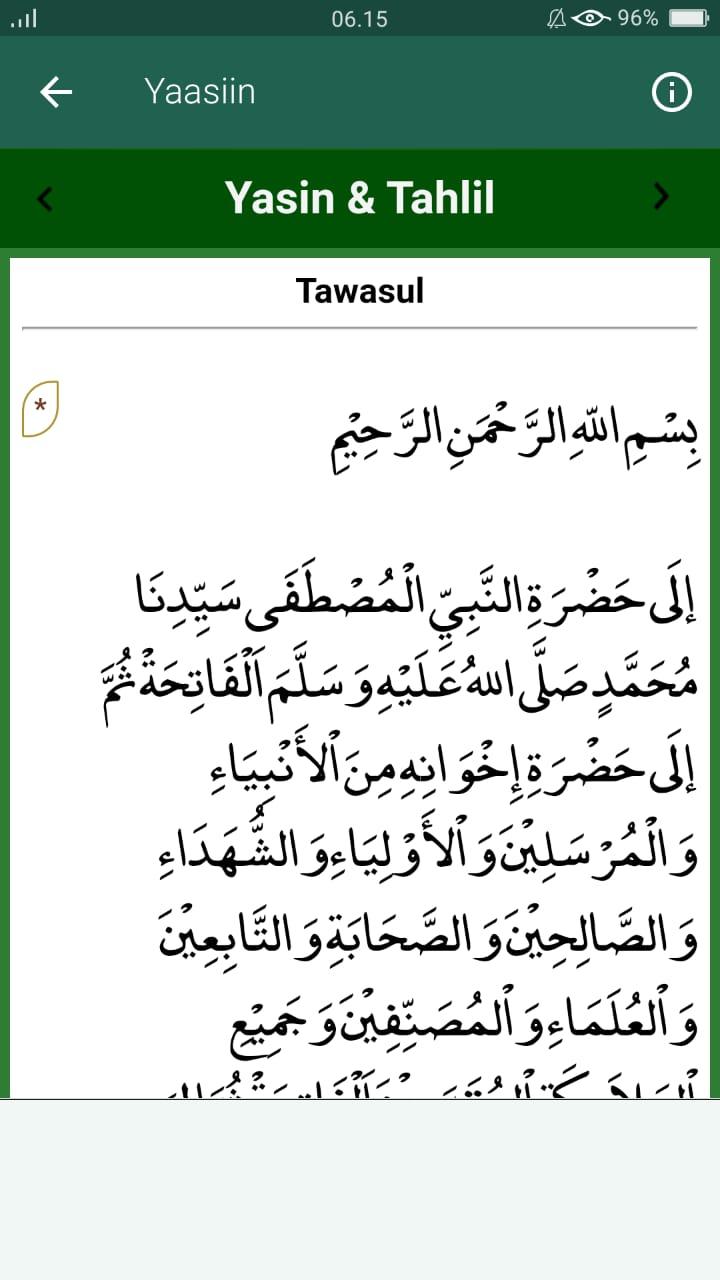 06.15
96%
Yaasiin
Yasin & Tahlil
Tawasul
*
بِسْمِ اللّٰهِ الرَّحْمَنِ الرَّحِيْمِ
إِلَى حَضْرَةِ النَّبِيِّ الْمُصْطَفَى سَيِّدِنَا
مُحَمَّدٍ صَلَّى اللهُ عَلَيْهِ وَ سَلَّمَ اَلْفَاتِحَةْ ثُمَّ
إِلَى حَضْرَةِ إِخْوَانِهِ مِنَ الْأَنْبِيَاءِ
وَ الْمُرْسَلِيْنَ وَ الْأَوْلِيَاءِ وَ الشُّهَدَاءِ
وَ الصَّالِحِيْنَ وَ الصَّحَابَةِ وَ التَّابِعِيْنَ
وَ الْعُلَمَاءِ وَ الْمُصَنِّفِيْنَ وَ جَمِيْعِ